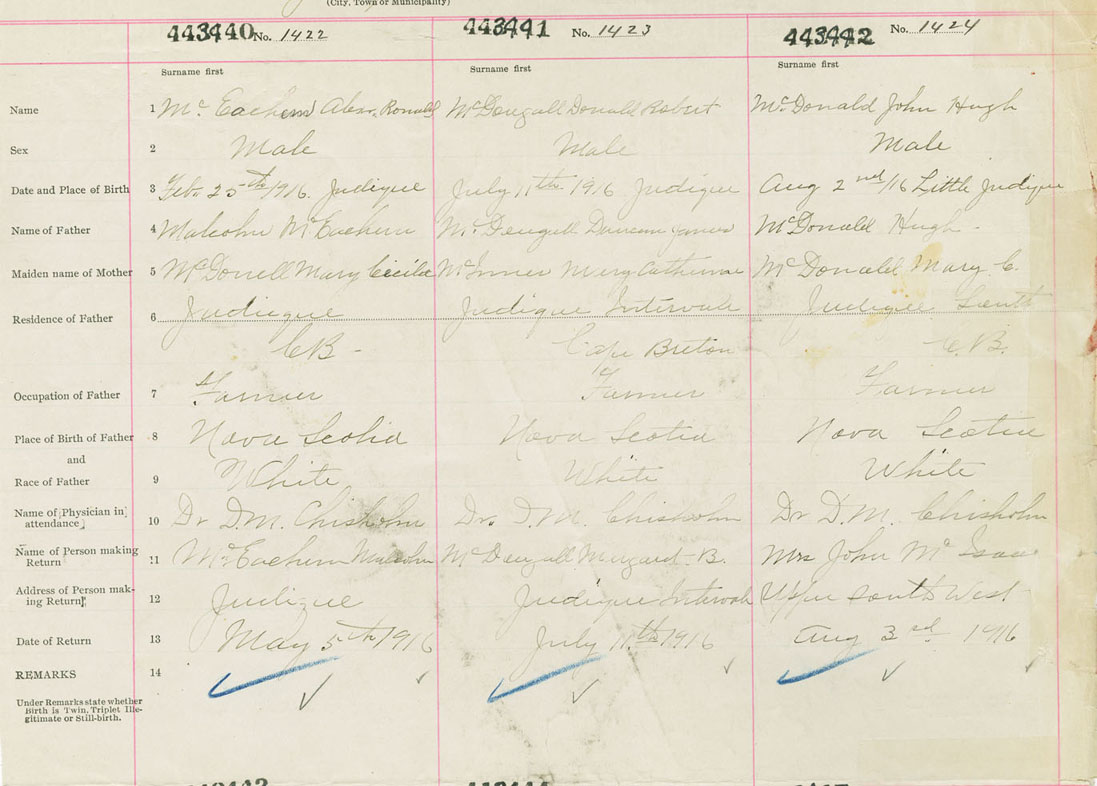 (City, Town or Municipality)
443440 No. 1422 443441 No. 1423 443442 No. 1424
Surname first Surname first Surname first
Name 1 McEachern Alex. Ronald McDougall Donald Robert McDonald John Hugh
Sex 2 Male Male Male
Date and Place of Birth 3 Feb. 25th/1916. Judique July 11th 1916 Judique Aug 2nd/16 Little Judique
Name of Father 4 Malcolm McEachern McDougall Duncan James McDonald Hugh -
Maiden name of Mother 5 McDonell Mary Cecilia McInnes Mary Catherine McDonald Mary C.
Residence of Father 6 Judique Judique Intervale Judique South
CB - Cape Breton C.B.
Occupation of Father 7 Farmer Farmer Farmer
Place of Birth of Father 8 Nova Scotia Nova Scotia Nova Scotia
and
Race of Father 9 White White White
Name of Physician in
attendance 10 Dr D.M. Chisholm Dr. D.M. Chisholm Dr D.M. Chisholm
Name of Person making
Return 11 McEachern Malcolm McDougall Margaret B. Mrs John McIsaac
Address of Person mak-
ing Return 12 Judique Judique Intervale Upper South West
Date of Return 13 May 5th 1916 July 11th 1916 Aug 3rd 1916
REMARKS 14
Under Remarks state whether
Birth is Twin, Triplet Ille-
gitimate or Still-birth.